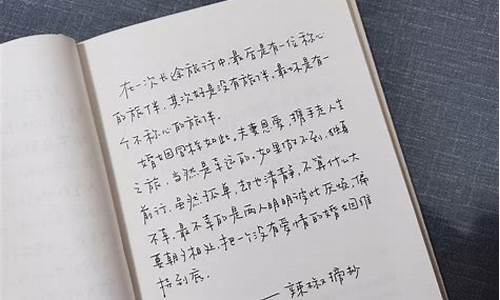 在一次长途旅行中,最后是有一位称心
的旅伴,其次好是没有旅伴,最坏是有一
个不称心的旅伴。
婚姻同样如此。夫妻恩爱,携手走人生
之旅,当然是幸运的。如果做不到,独自
前行,虽然孤单,却也清静,不算什么大
不幸,最不幸的是两人明明彼此厌烦,偏
要朝夕相处,把一个没有爱情的婚姻维
持到底。
—— 辣椒摘抄